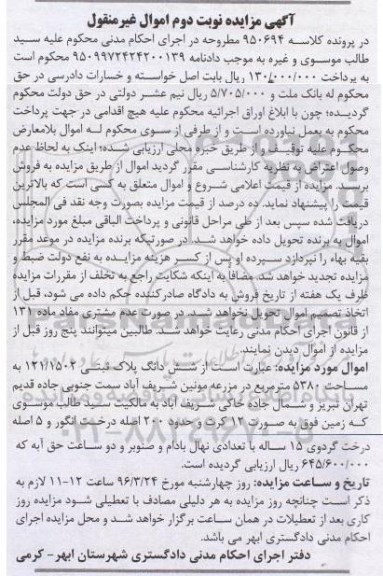 آگهی مزایده نوبت دوم اموال غیرمنقول
در پرونده کلاسه ۹۵۰۶۹۴ مطروحه در اجرای احکام مدنی محکوم علیه سید
طالب موسوی و غیره به موجب دادنامه ۹۵۰۹۹۷۲۴۲۴۲۰۰۱۳۹ محکوم است
به پرداخت ۱۳۰/۰۰۰/۰۰۰ ریال بابت اصل خواسته و خسارات دادرسی در حق
محکوم له بانک ملت و ۵/۷۰۵/۰۰۰ ریال نیم عشر دولتی در حق دولت محکوم
گردیده؛ چون با ابلاغ اوراق اجرائیه محکوم علیه هیچ اقدامی در جهت پرداخت
محکوم به بعمل نیاورده است و از طرفی از سوی محکوم له اموال بلامعارض
محکوم علیه توقیف و از طریق خبره محلی ارزیابی شده؛ اینک به لحاظ عدم
وصول اعتراض به نظریه کارشناسی مقرر گردید اموال از طریق مزایده به فروش
برسد. مزایده از قیمت اعلامی شروع و اموال متعلق به کسی است که بالاترین
قیمت را پیشنهاد نماید. ده درصد از قیمت مزایده بصورت وجه نقد فی المجلس
دریافت شده سپس بعد از طی مراحل قانونی و پرداخت الباقی مبلغ مورد مزایده،
اموال به برنده تحویل داده خواهد شد. در صورتیکه برنده مزایده در موعد مقرر
بقیه بهاء را نپردازد سپرده او پس از کسر هزینه مزایده به نفع دولت ضبط و
مزایده تجدید خواهد شد. مضافا به اینکه شکایت راجع به تخلف از مقررات مزایده
ظرف یک هفته از تاریخ فروش به دادگاه صادرکننده حکم داده می شود، قبل از
اتخاذ تصمیم اموال تحویل نخواهد شد. در صورت عدم مشتری مفاد ماده ۱۳۱
از قانون اجرای احکام مدنی رعایت خواهد شد. طالبین میتوانند پنج روز قبل از
مزایده از اموال دیدن نمایند.
اموال مورد مزایده: عبارت است از شش دانگ پلاک ثبتی ۱۲۱/۱۵۰۲ به
مساحت ۵۳۸۰ مترمربع در مزرعه موئین شریف آباد سمت جنوبی جاده قدیم
تهران تبریز و شمال جاده خاکی شریف آباد به مالکیت سید طالب موسوی
که زمین فوق به صورت ۱۲ کرت و حدود ۲۰۰ اصله درخت انگور و ۵ اصله
درخت گردوی ۱۵ ساله با تعدادی نهال بادام و صنوبر و دو ساعت حق آبه که
۶۴۵/۶۰۰/۰۰۰ ریال ارزیابی گردیده است.
تاریخ و ساعت مزایده: روز چهارشنبه مورخ ۹۶/۳/۲۴ ساعت ۱۲-۱۱ لازم به
ذکر است چنانچه روز مزایده به هر دلیلی مصادف با تعطیلی شود مزایده روز
کاری بعد از تعطیلات در همان ساعت برگزار خواهد شد و محل مزایده اجرای
احکام مدنی دادگستری ابهر می باشد.
دفتر اجرای احکام مدنی دادگستری شهرستان ابهر- کرمی